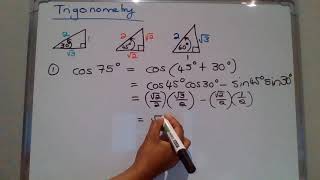 Trigonometry
2 1 30° √3
2 √2 45° √2
2 √3 60° 1
① cos 75° = cos (45° + 30°)
= cos45°cos30° - sin45°sin30°
= (√2/2)(√3/2) - (√2/2)(1/2)
= √